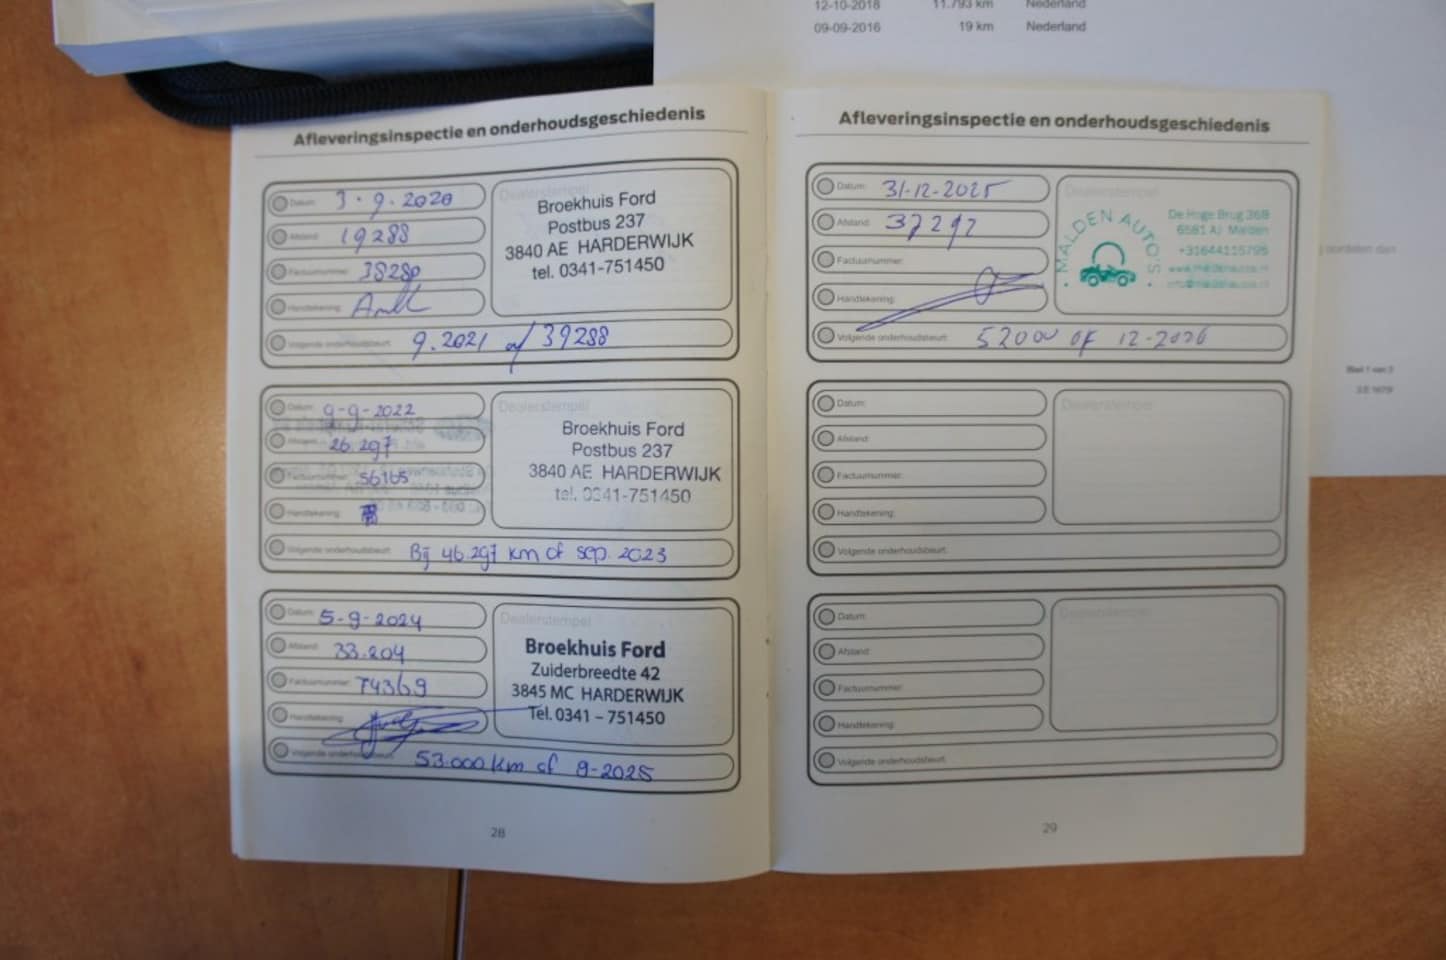 12-10-2018 11.793 km Nederland
09-09-2016 19 km Nederland
Afleveringsinspectie en onderhoudsgeschiedenis
Datum: 3.9.2020
Afstand: 19288
Factuurnummer: 38280
Handtekening:
Dealerstempel
Broekhuis Ford
Postbus 237
3840 AE HARDERWIJK
tel. 0341-751450
Volgende onderhoudsbeurt: 9.2021 of 39288
Datum: 9-9-2022
Afstand: 26.297
Factuurnummer: 56165
Handtekening:
Dealerstempel
Broekhuis Ford
Postbus 237
3840 AE HARDERWIJK
tel. 0341-751450
Volgende onderhoudsbeurt: Bij 46.297 km of sep. 2023
Datum: 5-9-2024
Afstand: 33.204
Factuurnummer: 74369
Handtekening:
Dealerstempel
Broekhuis Ford
Zuiderbreedte 42
3845 MC HARDERWIJK
Tel. 0341 – 751450
Volgende onderhoudsbeurt: 53.000 km of 9-2025
28
Afleveringsinspectie en onderhoudsgeschiedenis
Datum: 31-12-2025
Afstand: 37297
Factuurnummer:
Handtekening:
Dealerstempel
MALDEN AUTO'S
De Hoge Brug 36B
6581 AJ Malden
+31644115795
Volgende onderhoudsbeurt: 52000 of 12-2026
Datum:
Afstand:
Factuurnummer:
Handtekening:
Dealerstempel
Volgende onderhoudsbeurt:
Datum:
Afstand:
Factuurnummer:
Handtekening:
Dealerstempel
Volgende onderhoudsbeurt:
29